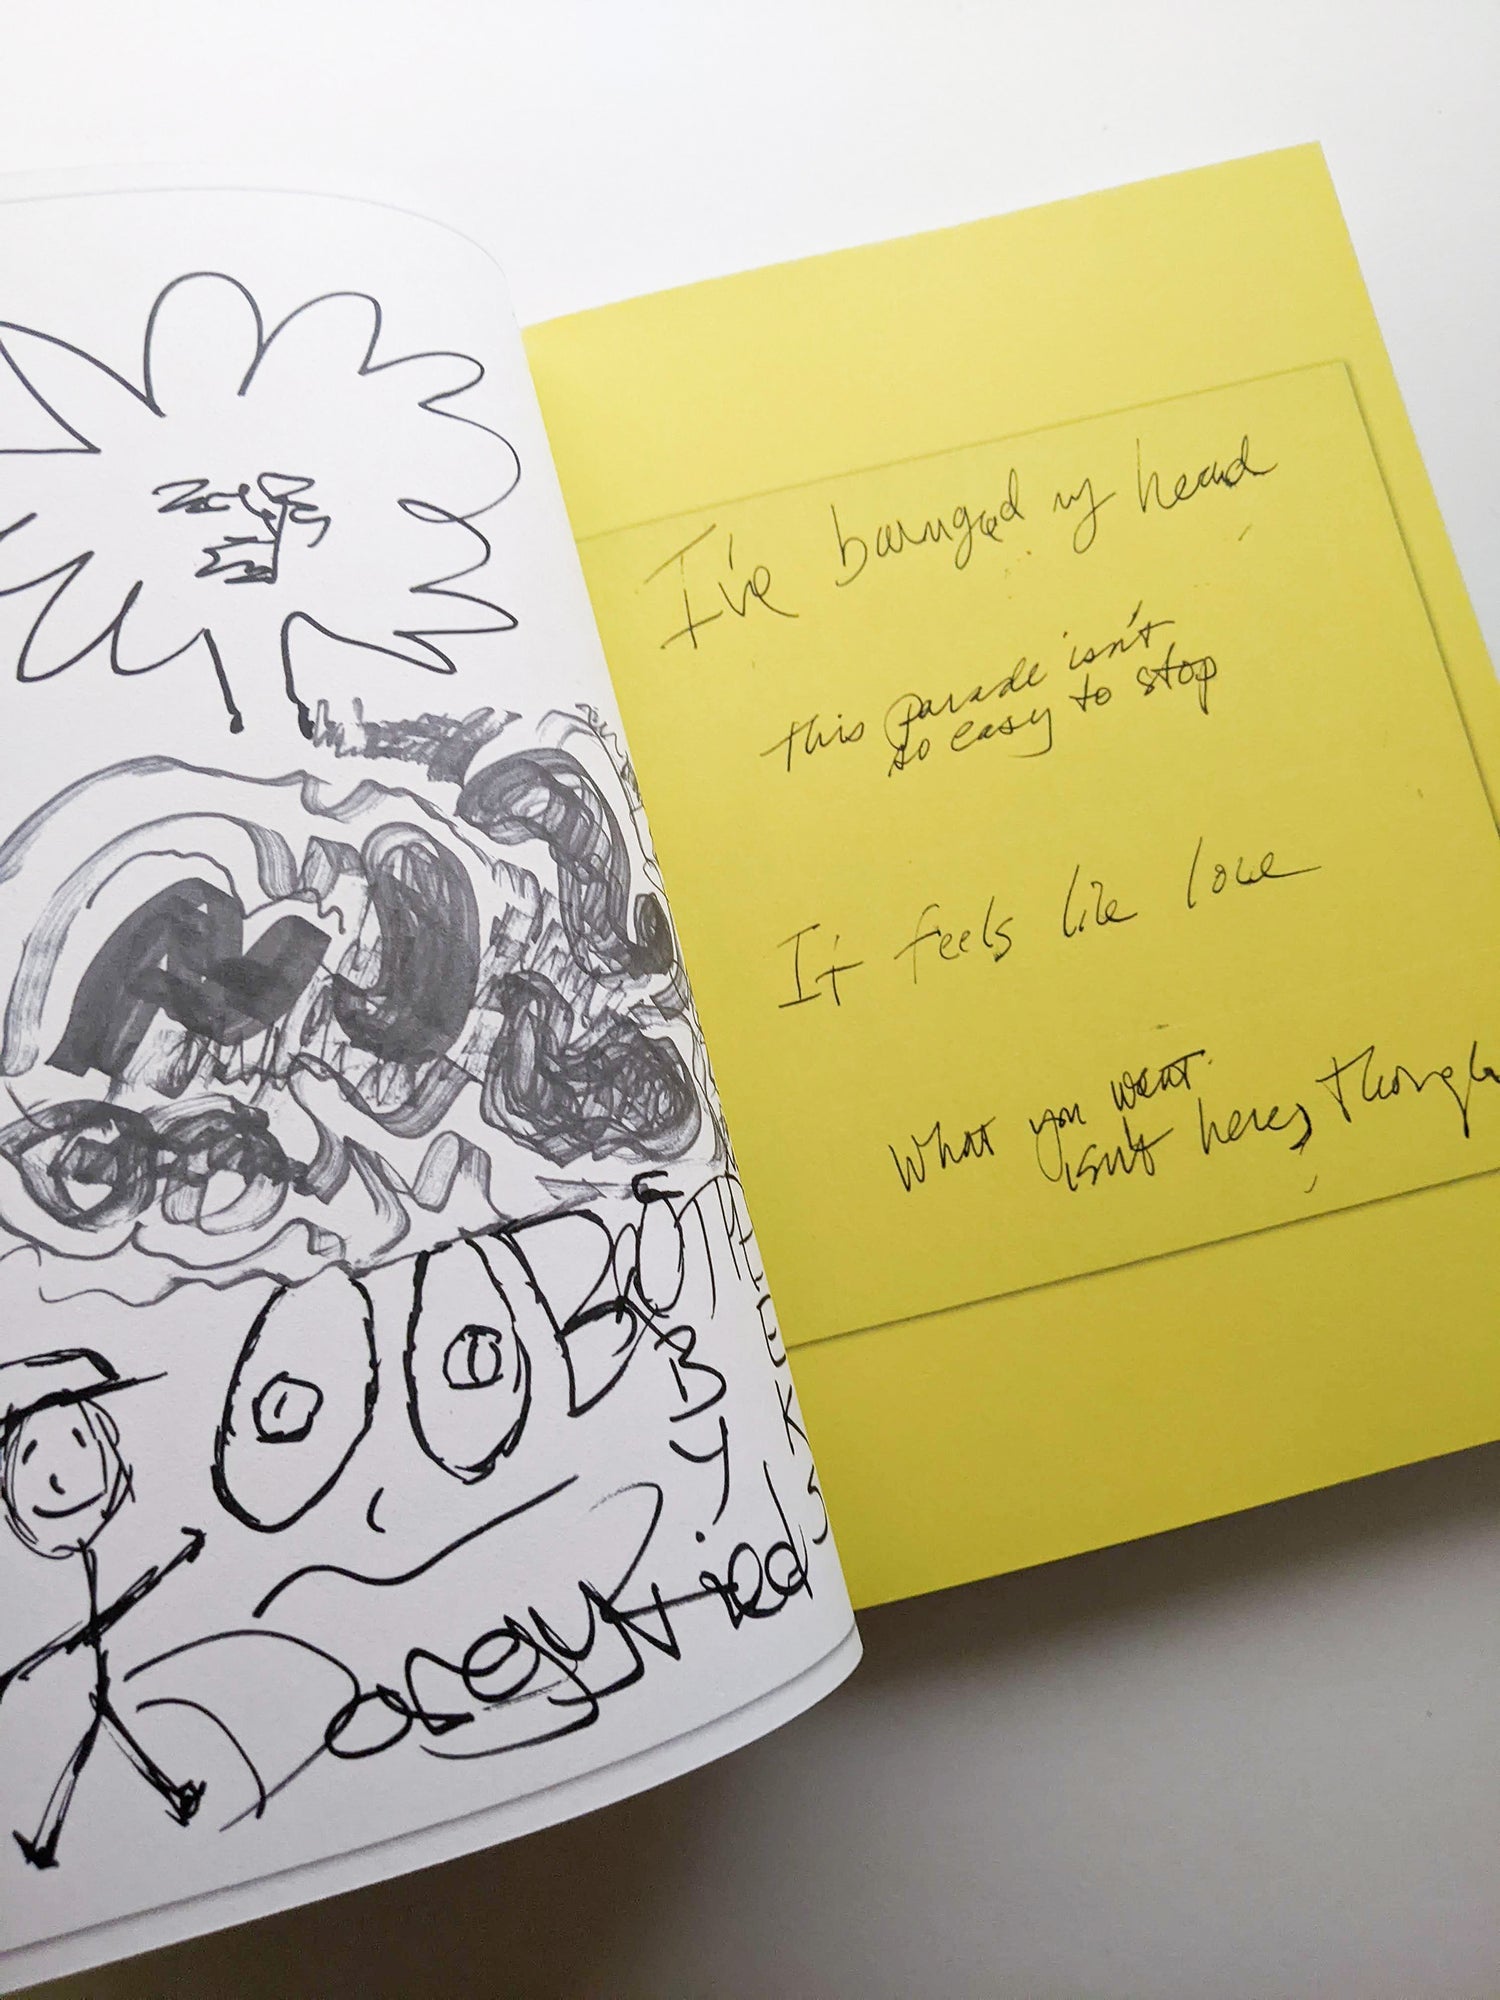 BOOTPEEKS
BY
I've banged my head
this parade isn't
so easy to stop
It feels like love
What you want
isn't here, though